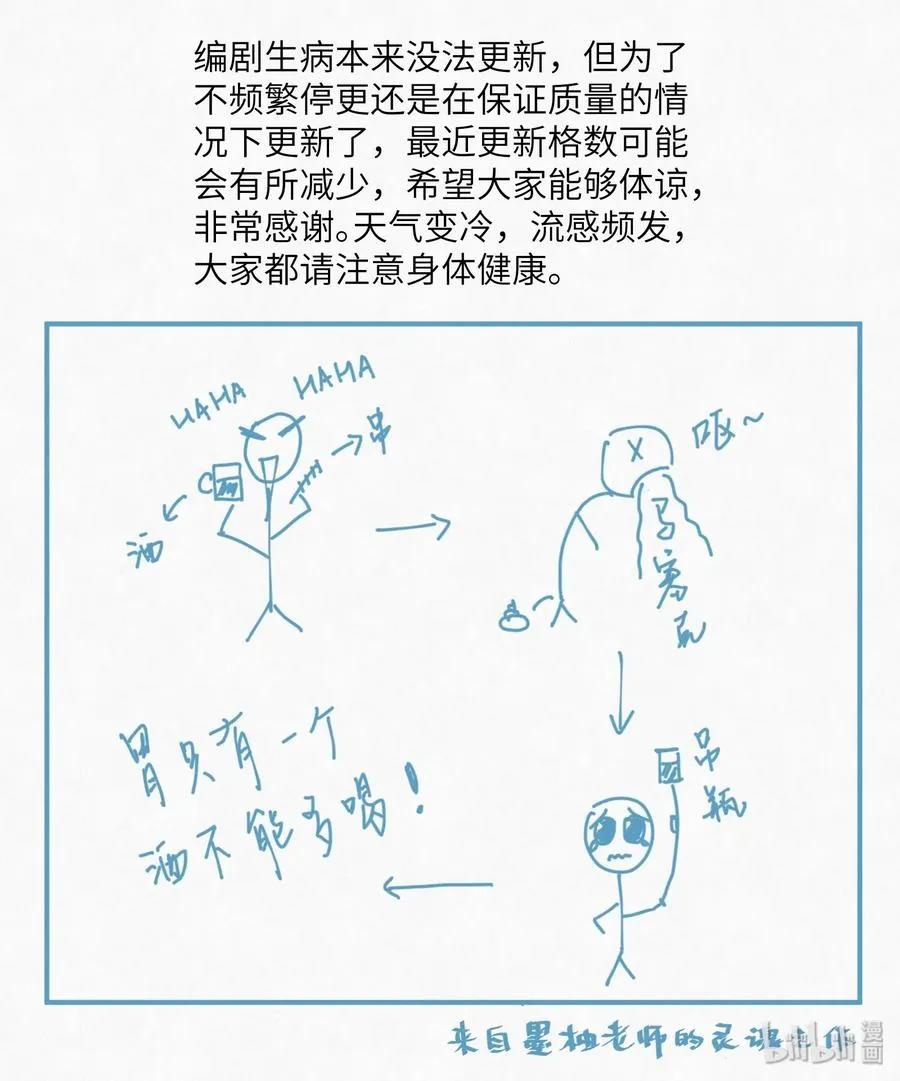 编剧生病本来没法更新，但为了
不频繁停更还是在保证质量的情
况下更新了，最近更新格数可能
会有所减少，希望大家能够体谅，
非常感谢。天气变冷，流感频发，
大家都请注意身体健康。
HAHA
HAHA
串
酒
呕~
X
马赛克
吊瓶
胃只有一个
酒不能多喝！
来自墨柚老师的灵魂大作
bilibili漫画